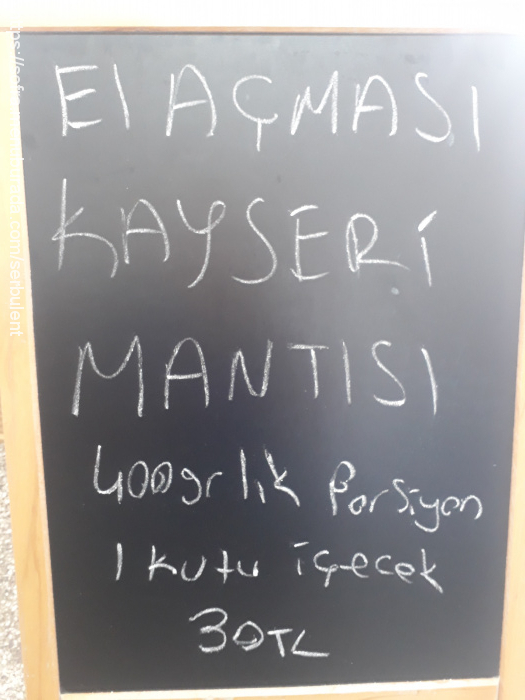 El AÇMASI
KAYSERİ
MANTISI
400gr lık Porsiyon
1 kutu içecek
30TL
.com/serbulent